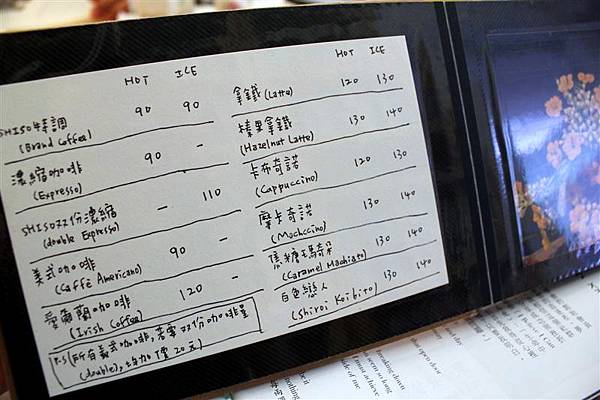 HOT ICE
SHISO特調 90 90
(Brand Coffee)
濃縮咖啡 90 -
(Espresso)
SHISO双份濃縮 - 110
(double Espresso)
美式咖啡 90 -
(Caffè Americano)
愛爾蘭咖啡 120 -
(Irish Coffee)
P.S(所有義式咖啡,若需双份咖啡量
(double), 均加價20元)
HOT ICE
拿鐵(Latte) 120 130
榛果拿鐵 130 140
(Hazelnut Latte)
卡布奇諾 120 130
(Cappuccino)
摩卡奇諾 130 140
(Mochccino)
焦糖瑪奇朵 130 140
(Caramel Machiato)
白色戀人 130 140
(Shiroi Koibito)
breaking down
seem so long
I must achieve
side of me
open door